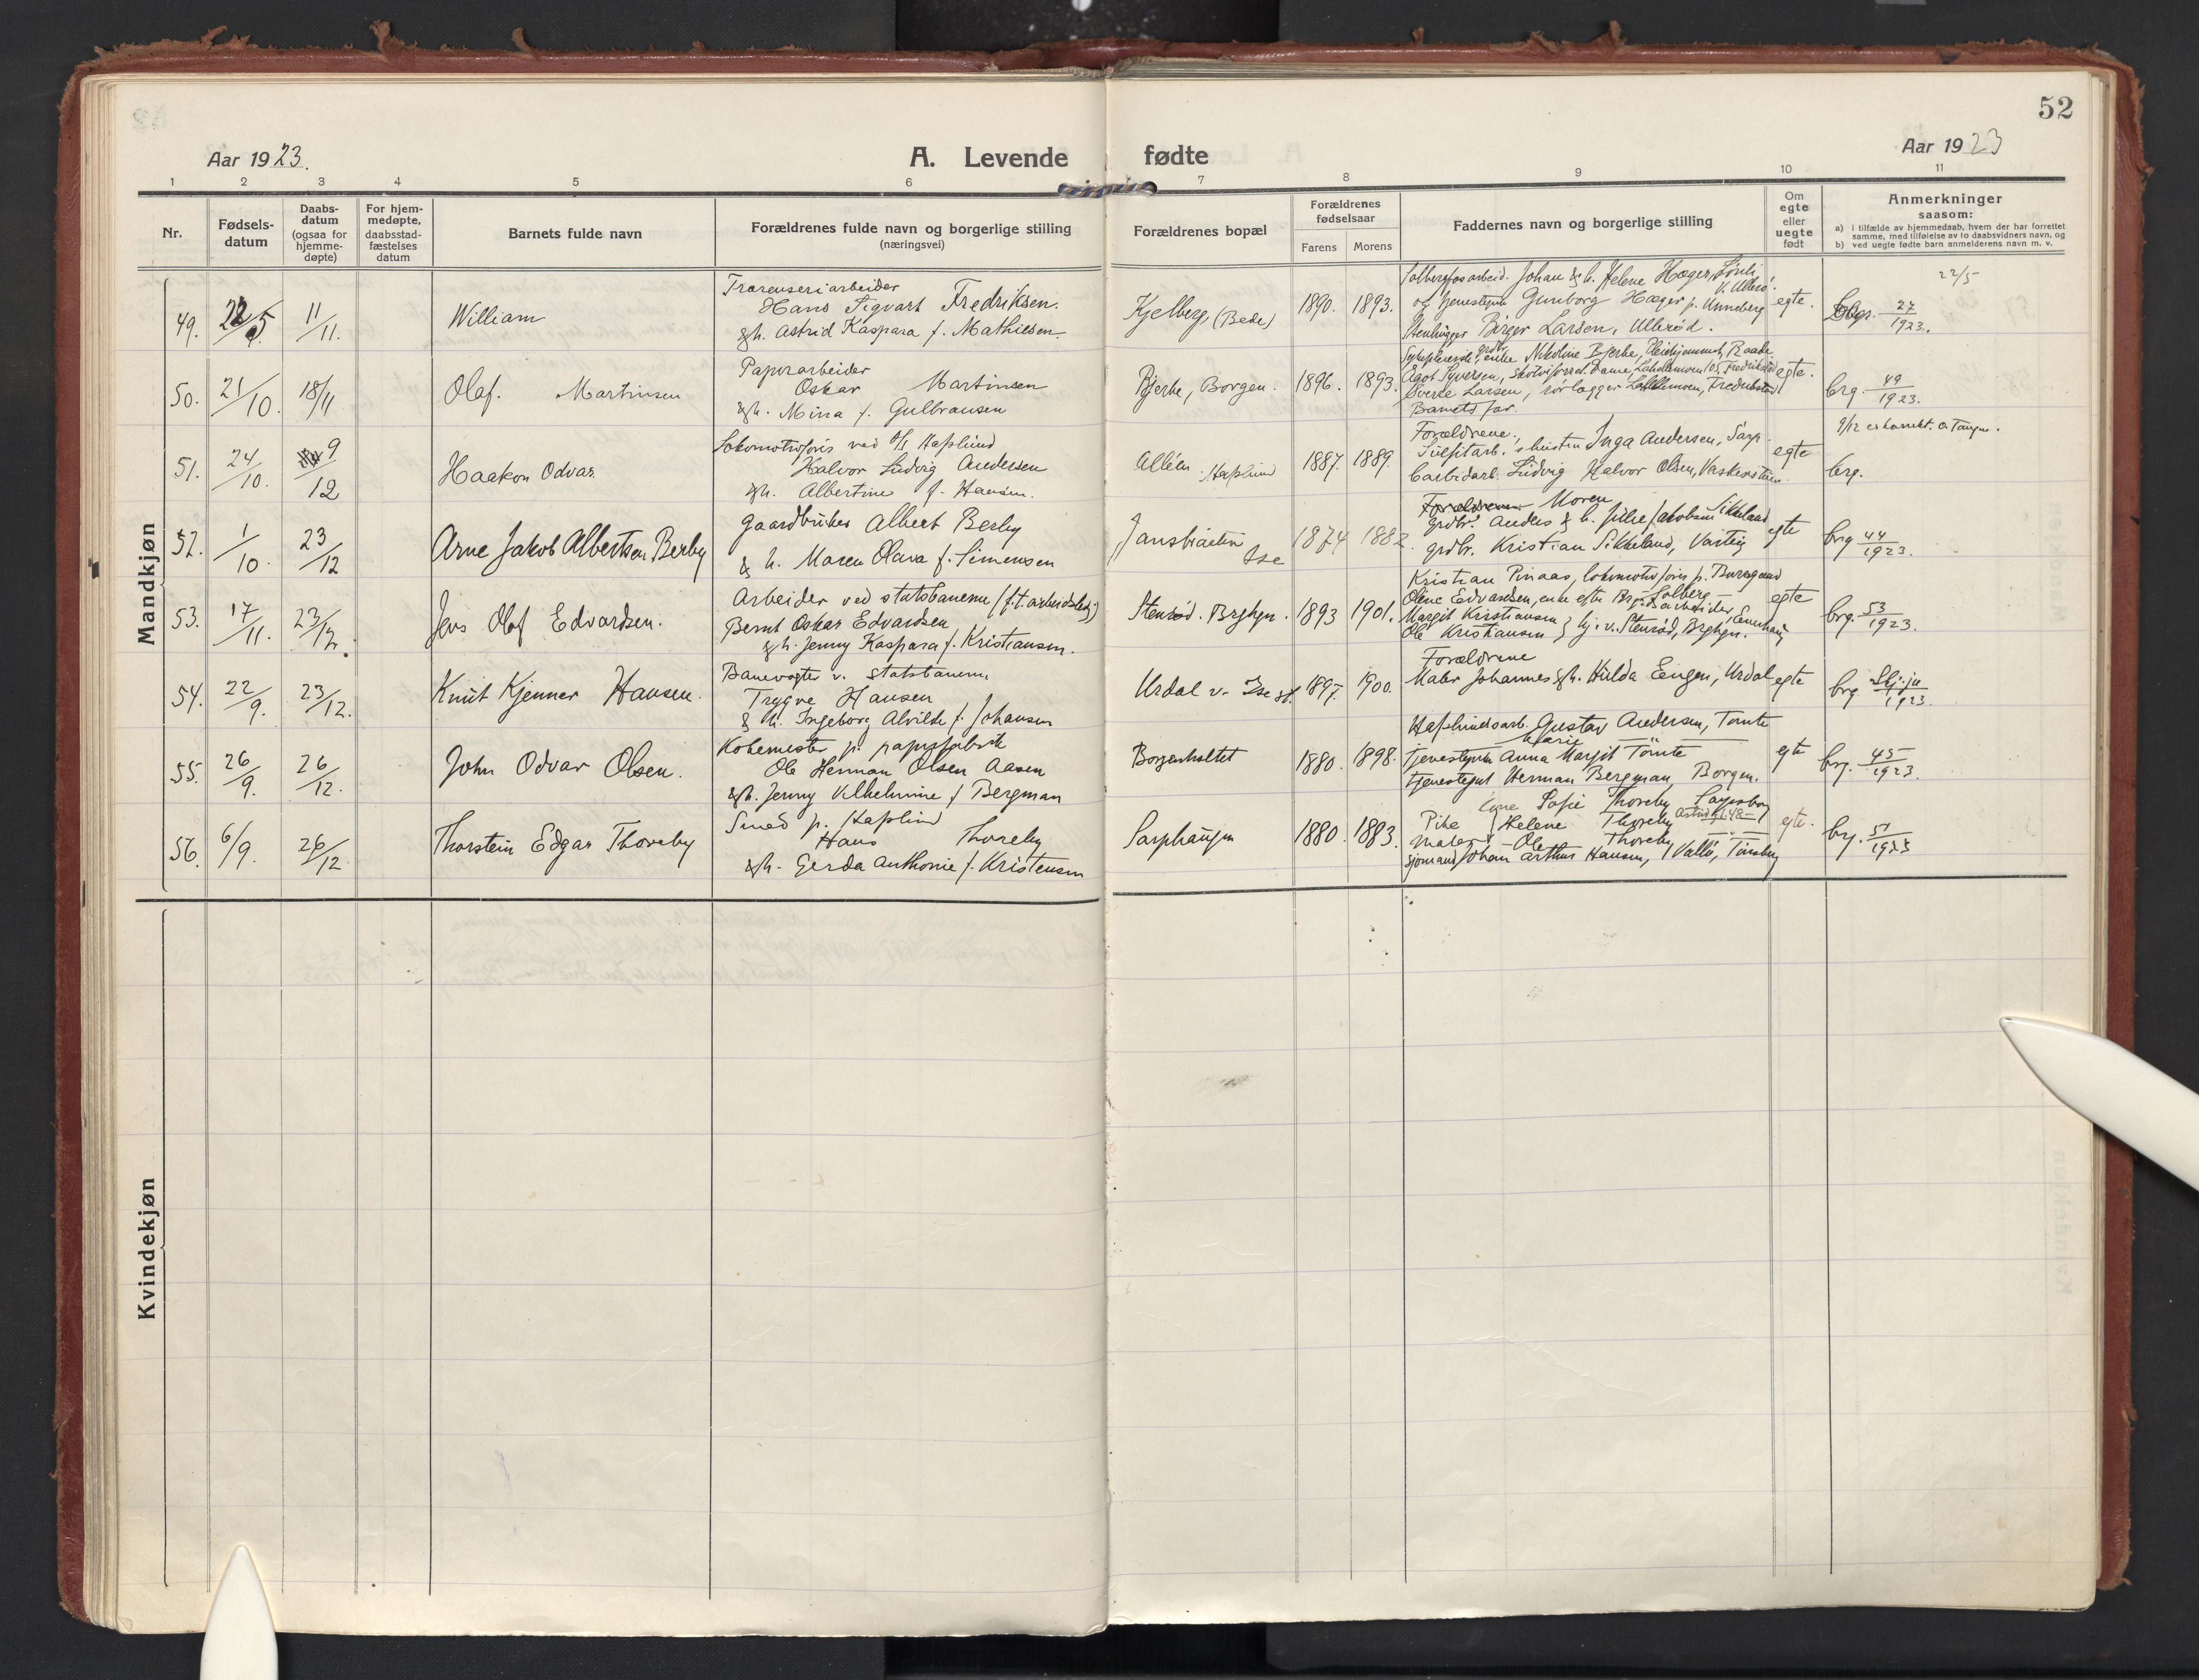 52
Aar 1923.
A. Levende fødte
Aar 1923
1 2 3 4 5 6 7 8 9 10 11
Nr.
Fødsels-
datum
Daabs-
datum
(ogsaa for
hjemme-
døpte)
For hjem-
medøpte,
daabsstad-
fæstelses
datum
Barnets fulde navn
Forældrenes fulde navn og borgerlige stilling
(næringsvei)
Forældrenes bopæl
Forældrenes
fødselsaar
Farens Morens
Faddernes navn og borgerlige stilling
Om
egte
eller
uegte
født
Anmerkninger
saasom:
a) i tilfælde av hjemmedaab, hvem der har forrettet
samme, med tilføielse av to daabsvidners navn, og
b) ved uegte fødte barn anmelderens navn m. v.
Mandkjøn
49. 22/5 11/11. William
Hans Sigvart Fredriksen.
& h. Astrid Kaspara f. Mathiesen
Kjelberg (Bede) 1890. 1893.
Johan & h. Helene Hæger,
og tjenestepn Gunborg Hæger p. Unneberg
Birger Larsen, Ullerød.
egte.
22/5
27/1923.
50. 21/10. 18/11 Olaf. Martinsen
Papirarbeider
Oskar Martinsen
& h. Mina f. Gulbransen
Bjerke, Borgen. 1896. 1893.
enke Nikoline Bjerke, Raade
Sverre Larsen, rørlægger Fredrikstad
Barnets far.
egte.
brg. 49/1923.
51. 24/10. 9/12 Haakon Odvar.
Lokomotivfører ved A/S Hafslund
Halvor Ludvig Andersen
& h. Albertine f. Hansen.
Alléen Hafslund 1887. 1889.
Forældrene,
hustru Inga Andersen, Sarp.
Carbidarb. Ludvig Halvor Olsen,
egte
9/12 er korrekt. O Tangen.
brg.
52. 1/10 23/12 Arne Jakob Albertsen Berby
Gaardbruker Albert Berby
& h. Maren Olava f. Simensen
Ise 1874 1882.
Forældrene Moren
grdbr. Anders & h. Jakobine Sikkeland
grdbr. Kristian Sikkeland, Varteig
egte
brg 44/1923.
53. 17/11. 23/12. Jens Olaf Edvardsen.
Arbeider ved statsbanerne (f.t. arbeidsledig)
Bernt Oskar Edvardsen
& h. Jenny Kaspara f. Kristiansen.
Stenrød. Brghgn. 1893 1901.
Kristian Pinaas, lokomotivfører p. Borregaard
Olene Edvardsen, enke efter
Margit Kristiansen
Ole Kristiansen } hj. v. Stenrød, Brghgn.
egte
brg. 53/1923.
54. 22/9. 23/12. Knut Kjenner Hansen.
Banevogter v. statsbanerne
Trygve Hansen
& h. Ingeborg Alvilde f. Johansen
Urdal v. Ise st. 1897. 1900.
Forældrene
Maler Johannes & h. Hulda Eugen, Urdal
egte
brg 1923.
55. 26/9. 26/12. John Odvar Olsen.
Kokemester p. papirfabrik
Ole Herman Olsen Aasen
& h. Jenny Vilhelmine f. Bergman
Borgenholtet 1880. 1898.
Hafslundsarb. Gustav Andersen, Tomte
Marie
Tjenestepn Anna Margit Tomte
tjenestegut Herman Bergman, Borgen.
egte
brg. 45/1923.
56. 6/9. 26/12 Thorstein Edgar Thoreby
Smed p. Hafslund
Hans Thoreby
& h. Gerda Anthonie f. Kristensen
Sarphaugen 1880. 1883.
Sofie Thoreby
Pike Helene Thoreby
Maler Ole Thoreby
Sjømand Johan Arthur Hansen, Vallø, Tønsberg
egte.
brg. 51/1923
Kvindekjøn